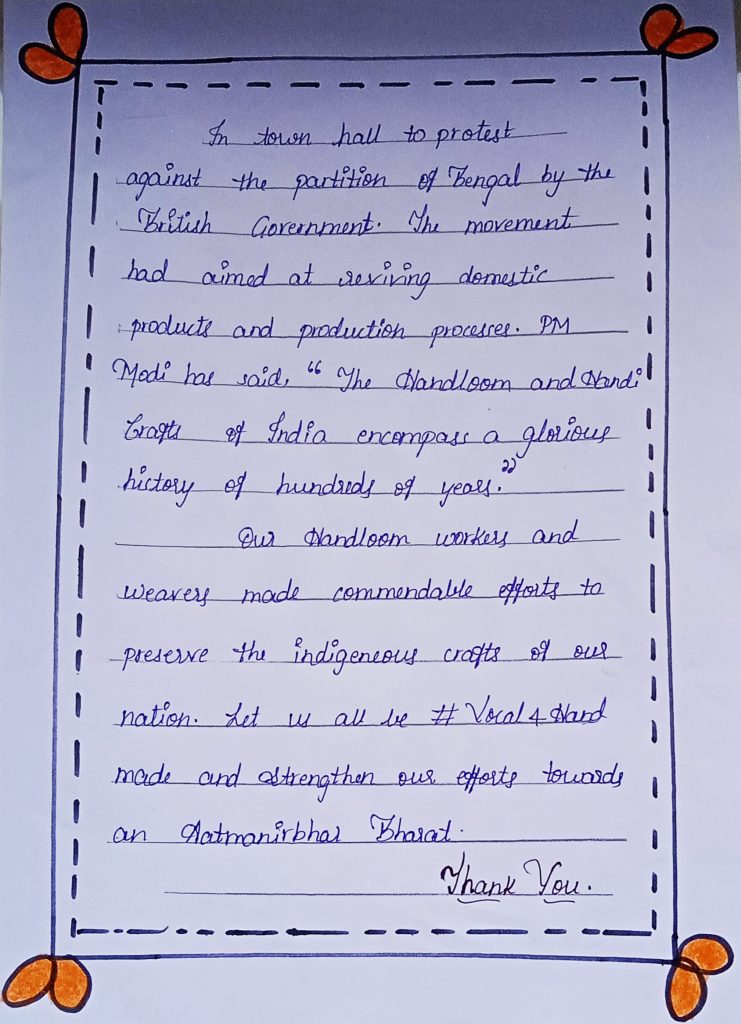 In town hall to protest
against the partition of Bengal by the
British Government. The movement
had aimed at reviving domestic
products and production processes. PM
Modi has said, “ The Handloom and Handi
Crafts of India encompass a glorious
history of hundreds of years.”
Our Handloom workers and
weavers made commendable efforts to
preserve the indigeneous crafts of our
nation. Let us all be # Vocal 4 Hand
made and strengthen our efforts towards
an Aatmanirbhar Bharat.
Thank You.